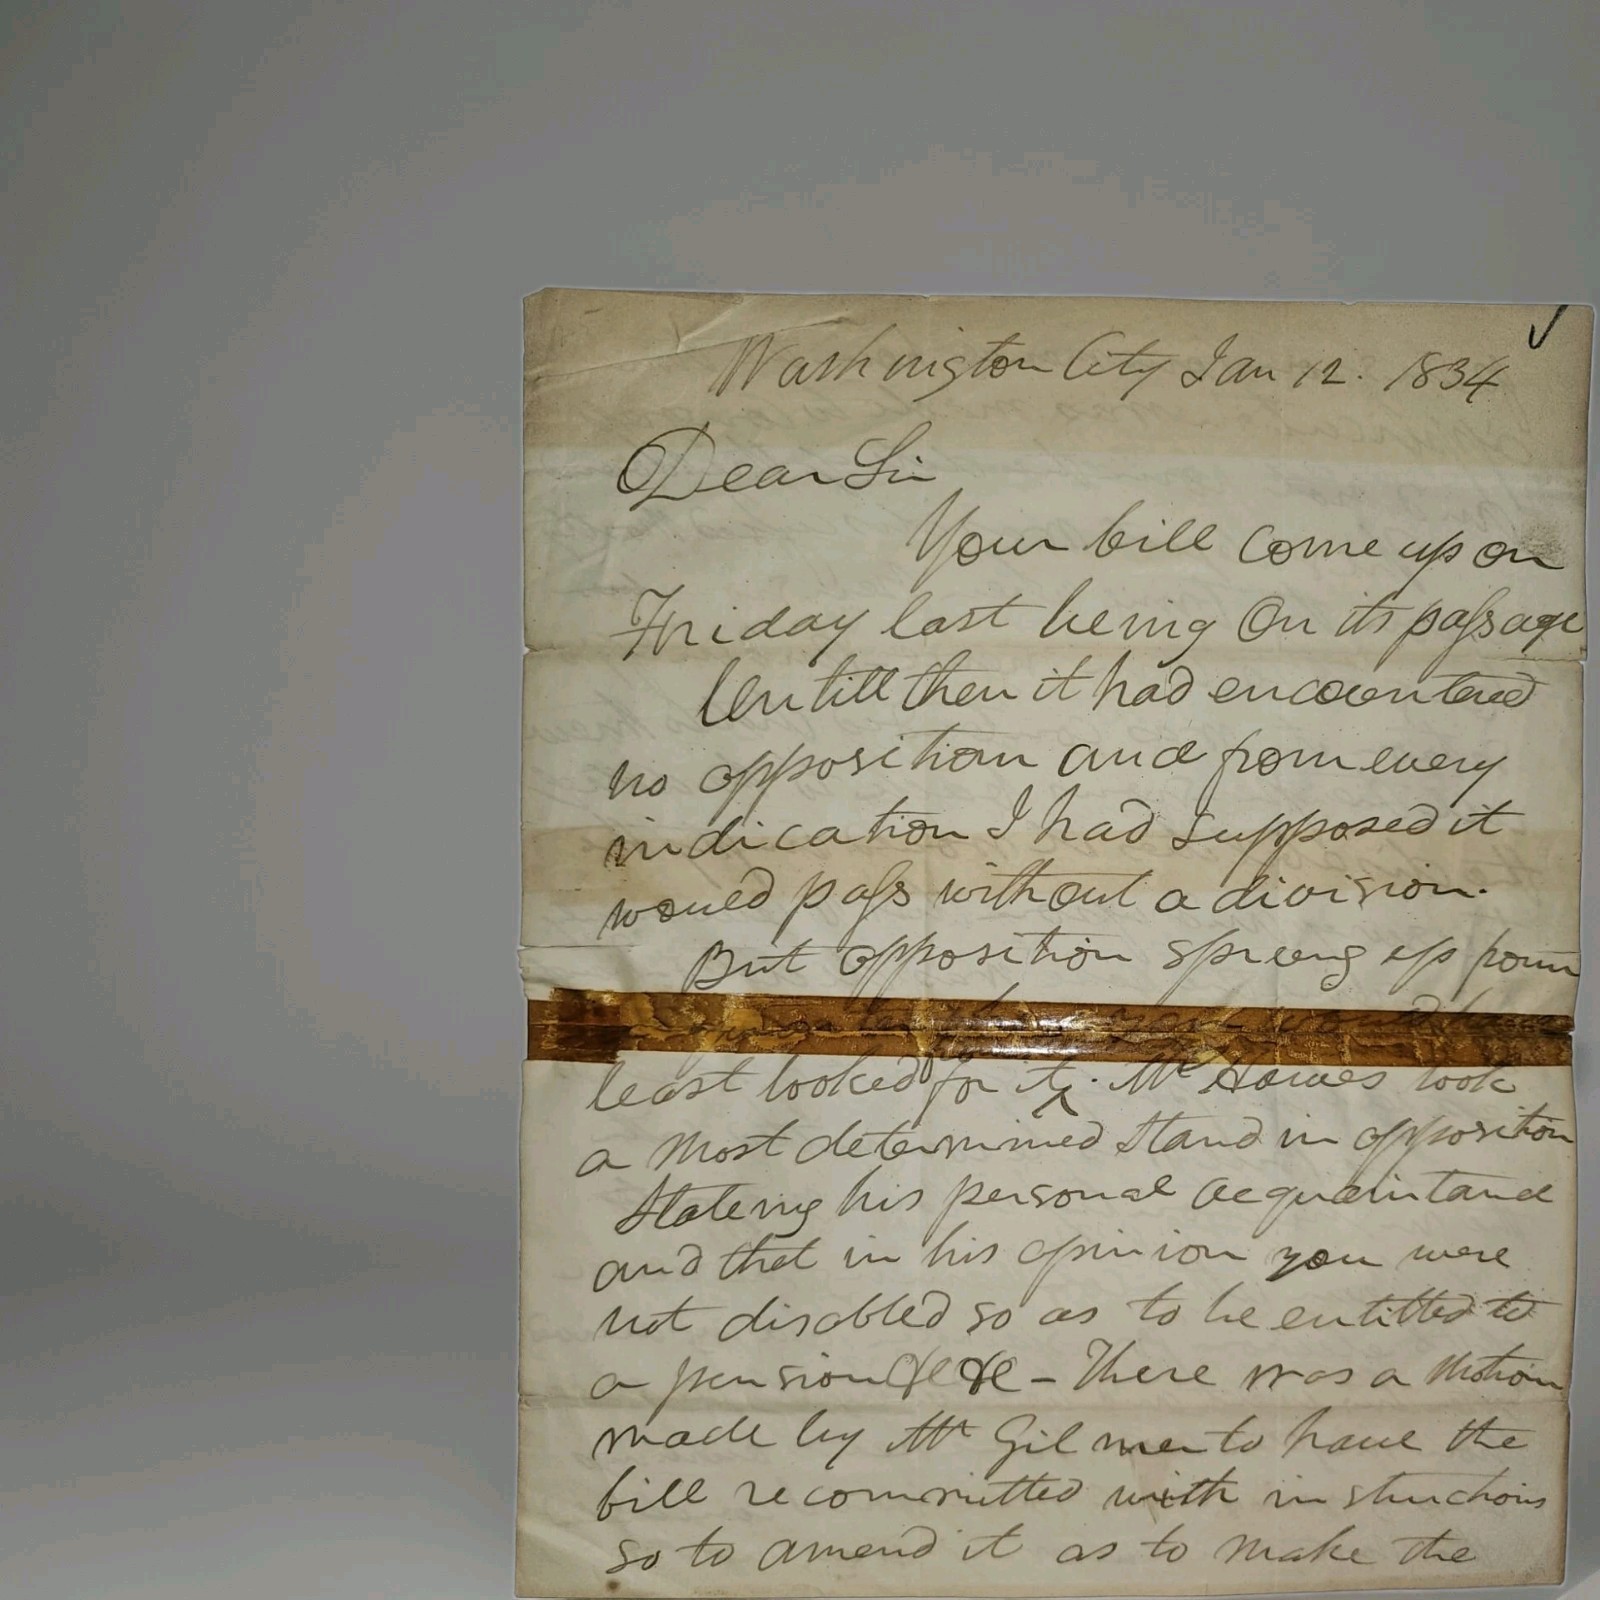 Washington City Jan 12. 1834
Dear Sir
Your bill come up on
Friday last being On its passage
Untill then it had encountered
no opposition and from every
indication I had supposed it
would pass without a division.
But opposition sprung up from
a you would have
least looked for it. Mr Hawes took
a most determined stand in opposition
Stateing his personal acquaintance
and that in his opinion you were
not disabled so as to be entitled to
a pension &c &c - There was a Motion
made by Mr Gilmer to have the
bill recommitted with instructions
so to amend it as to make the